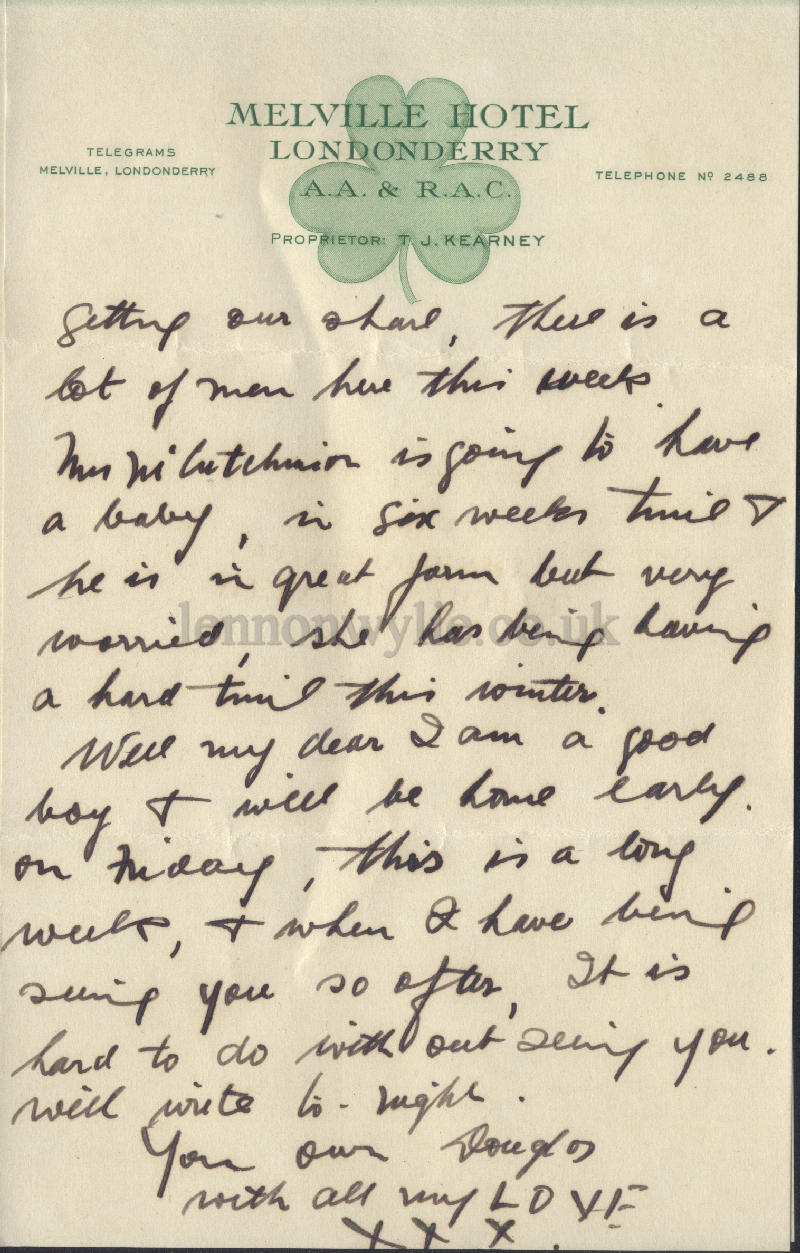 MELVILLE HOTEL
LONDONDERRY
TELEGRAMS
MELVILLE, LONDONDERRY
A.A. & R.A.C.
TELEPHONE Nº 2488
PROPRIETOR: T. J. KEARNEY
getting our share, there is a
lot of men here this week.
Mrs is going to have
a baby, in six weeks time &
he is in great form but very
worried, she has being having
a hard time this winter.
Well my dear I am a good
boy & will be home early.
on Friday, this is a long
week, & when I have being
seeing you so often, It is
hard to do with out seeing you.
will write to-night.
Your own Douglas
with all my LOVE
X X X.
lennonwylie.co.uk